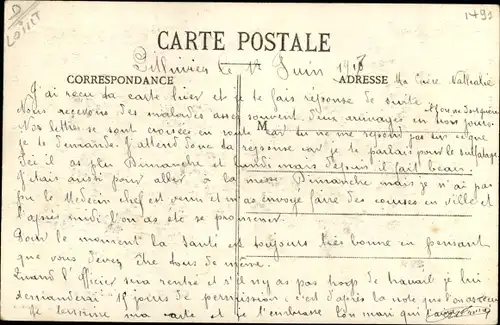 D
LOIRET
1493
CARTE POSTALE
Pithiviers le 12 Juin 1918
CORRESPONDANCE
ADRESSE
Ma Chère Nathalie
J'ai reçu ta carte hier et je te fais réponse de suite.
Nous recevons des malades assez souvent, deux arrivages en trois jours
M
Nos lettres se sont croisées en route car tu ne me répond pas sur ce que
je te demande. J'attend donc ta réponse car je te parlais pour le sulfatage
Ici il as plu Dimanche et Lundi mais depuis il fait beau.
J'étais aussi pour aller à la messe Dimanche mais je n'ai pas
pu le Médecin chef est venu et m'as envoyé faire des courses en ville et
l'après midi l'on as été se promener.
Pour le moment la santé est toujours très bonne en pensant
que vous devez être tous de même.
Quand l'officier sera rentré et s'il n'y as pas trop de travail je lui
demanderai 15 jours de permission, c'est d'après la note que l'on as reçu
Je termine ma carte et je t'embrasse ton mari qui t'aime